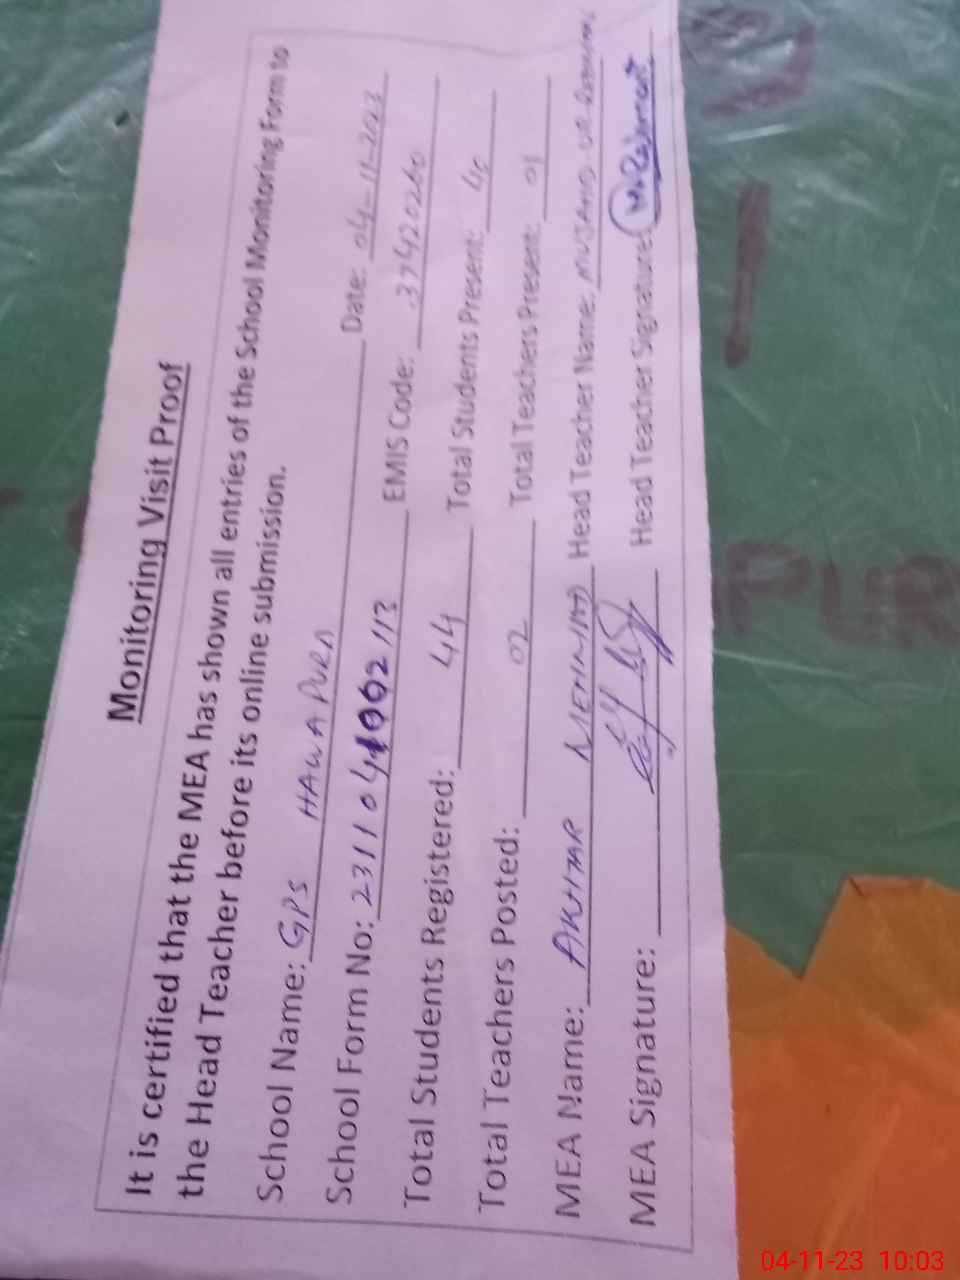 Monitoring Visit Proof
It is certified that the MEA has shown all entries of the School Monitoring Form to
the Head Teacher before its online submission.
School Name: GPS HAWA PURA Date: 04-11-2023
School Form No: 2311041002113 EMIS Code: 37420260
Total Students Registered: 44 Total Students Present:
Total Teachers Posted: 02 Total Teachers Present: 01
MEA Name: AKHTAR MEHMOOD Head Teacher Name: MUJAHID UR
MEA Signature: Head Teacher Signature:
PUR
04-11-23 10:03